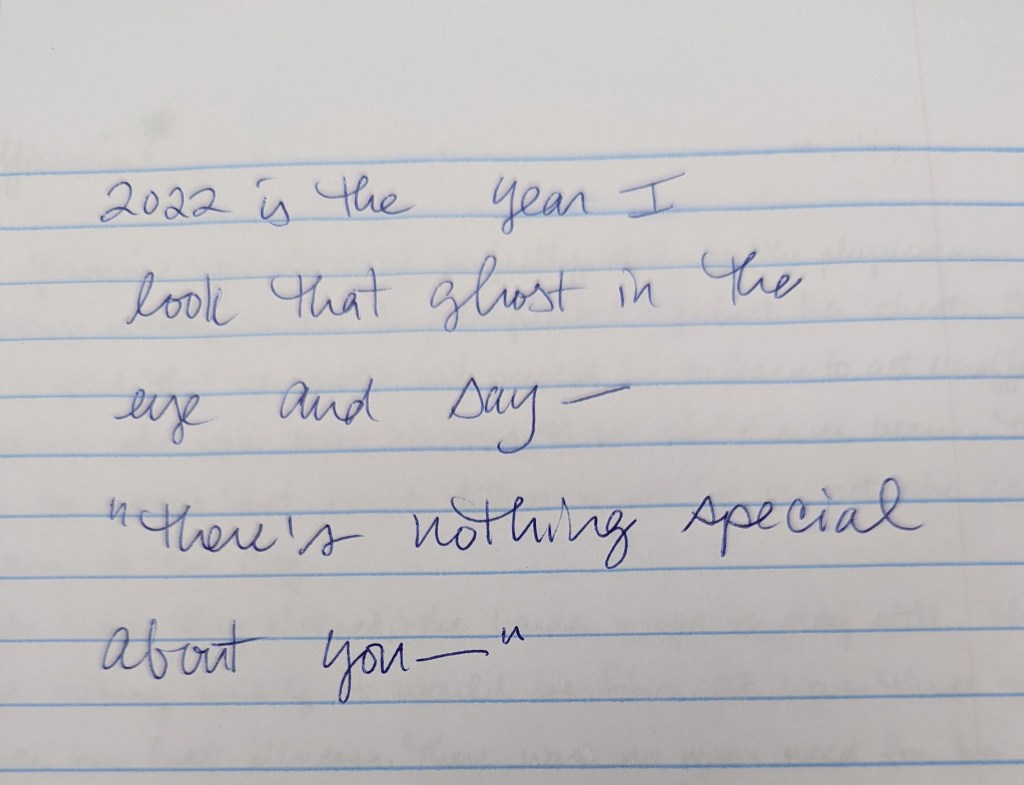 2022 is the year I
look that ghost in the
eye and say —
"there's nothing special
about you—"